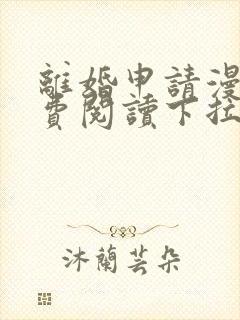 離婚申請漫
費閱讀下拉
沐蘭芸朵